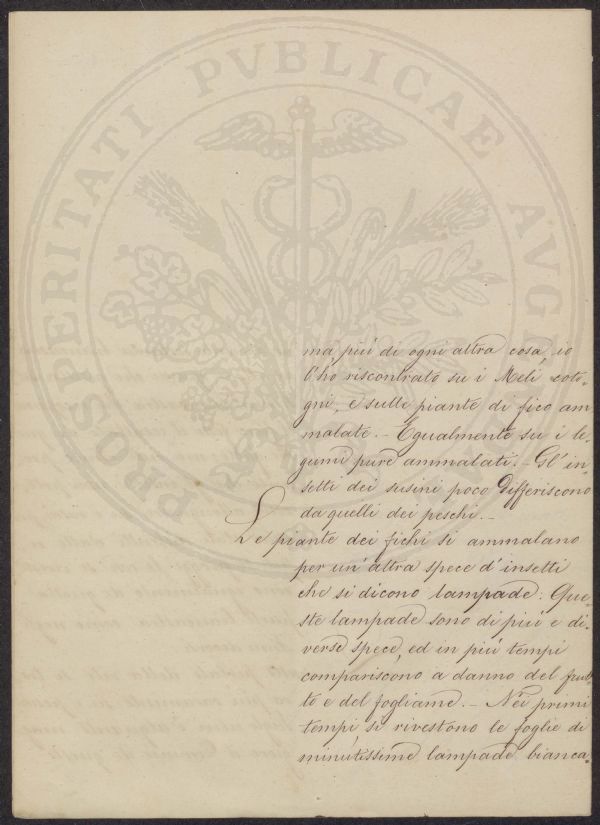 PROSPERITATI PVBLICAE AVGE
ma, più di ogni altra cosa, io
l'hò riscontrato su i Meli coto-
gni, e sulle piante di fico am
malate. - Egualmente su i le-
gumi pure ammalati. - Gl'in-
setti dei susini poco differiscono
da quelli dei peschi. -
Le piante dei fichi si ammalano
per un'altra spece d'insetti
che si dicono lampade: Que-
ste lampade sono di più e di-
verse spece, ed in più tempi
compariscono a danno del frut-
to e del fogliame. - Nei primi
tempi si rivestono le foglie di
minutissime lampade bianca